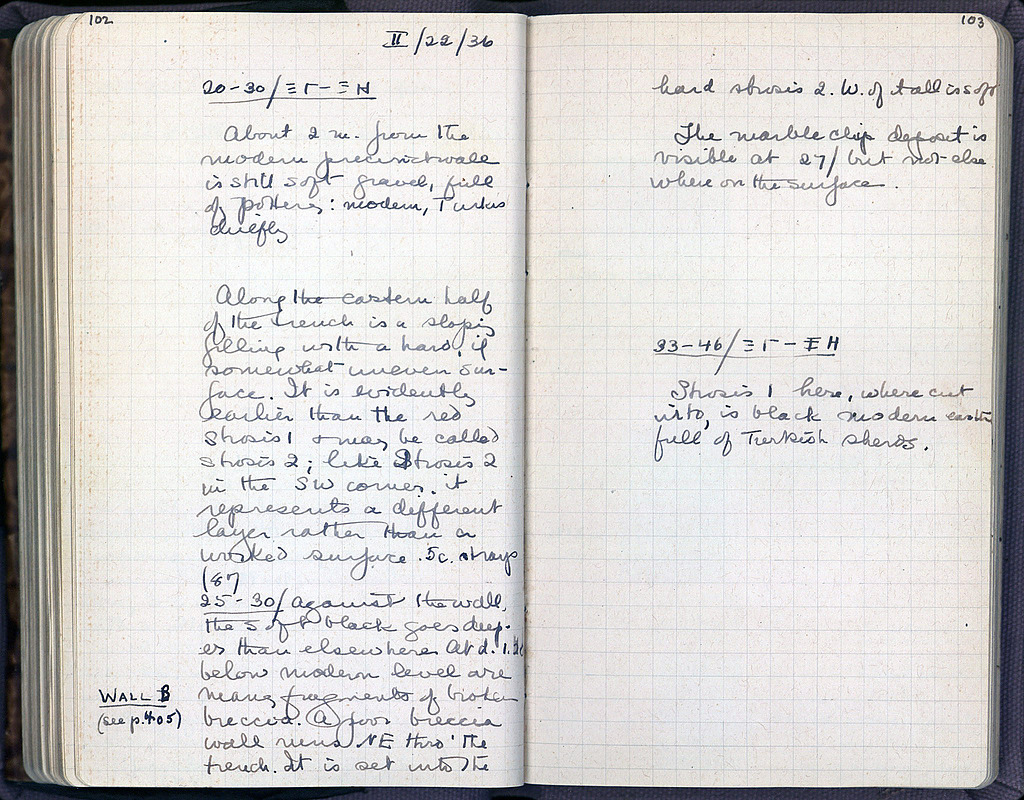 102
II/22/36
20-30/ΞΓ-ΞΗ
About 2 m. from the
modern precinct wall
is still soft gravel, full
of pottery: modern, Turkish
chiefly
Along the eastern half
of the trench is a sloping
filling with a hard, if
somewhat uneven sur-
face. It is evidently
earlier than the red
Strosis 1 & may be called
Strosis 2; like Strosis 2
in the SW corner, it
represents a different
layer rather than a
worked surface. 5c. strays
(87)
25-30/ against the wall,
the soft black goes deep-
er than elsewhere. At d. 1.
below modern level are
many fragments of broken
breccia. A poor breccia
wall runs NE thro' the
trench. It is set into the
WALL B
(see p. 405)
103
hard strosis 2. W. of wall is soft
The marble chip deposit is
visible at 27/ but not else
where on the surface.
33-46/ΞΓ-ΞΗ
Strosis 1 here, where cut
into, is black modern earth
full of Turkish sherds.